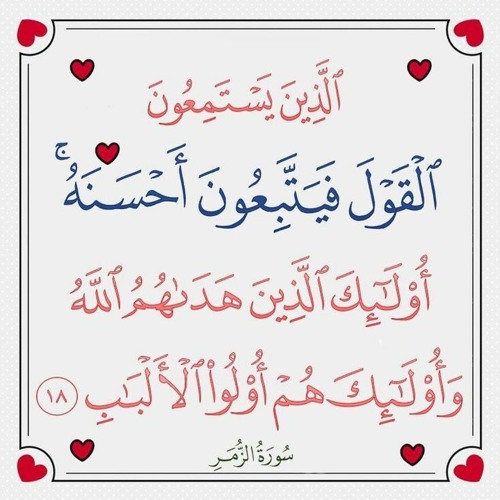 ٱلَّذِينَ يَسْتَمِعُونَ
ٱلْقَوْلَ فَيَتَّبِعُونَ أَحْسَنَهُۥٓ ۚ
أُو۟لَـٰٓئِكَ ٱلَّذِينَ هَدَىٰهُمُ ٱللَّهُ
وَأُو۟لَـٰٓئِكَ هُمْ أُو۟لُوا۟ ٱلْأَلْبَـٰبِ ١٨
سُورَةُ الزُّمَرِ